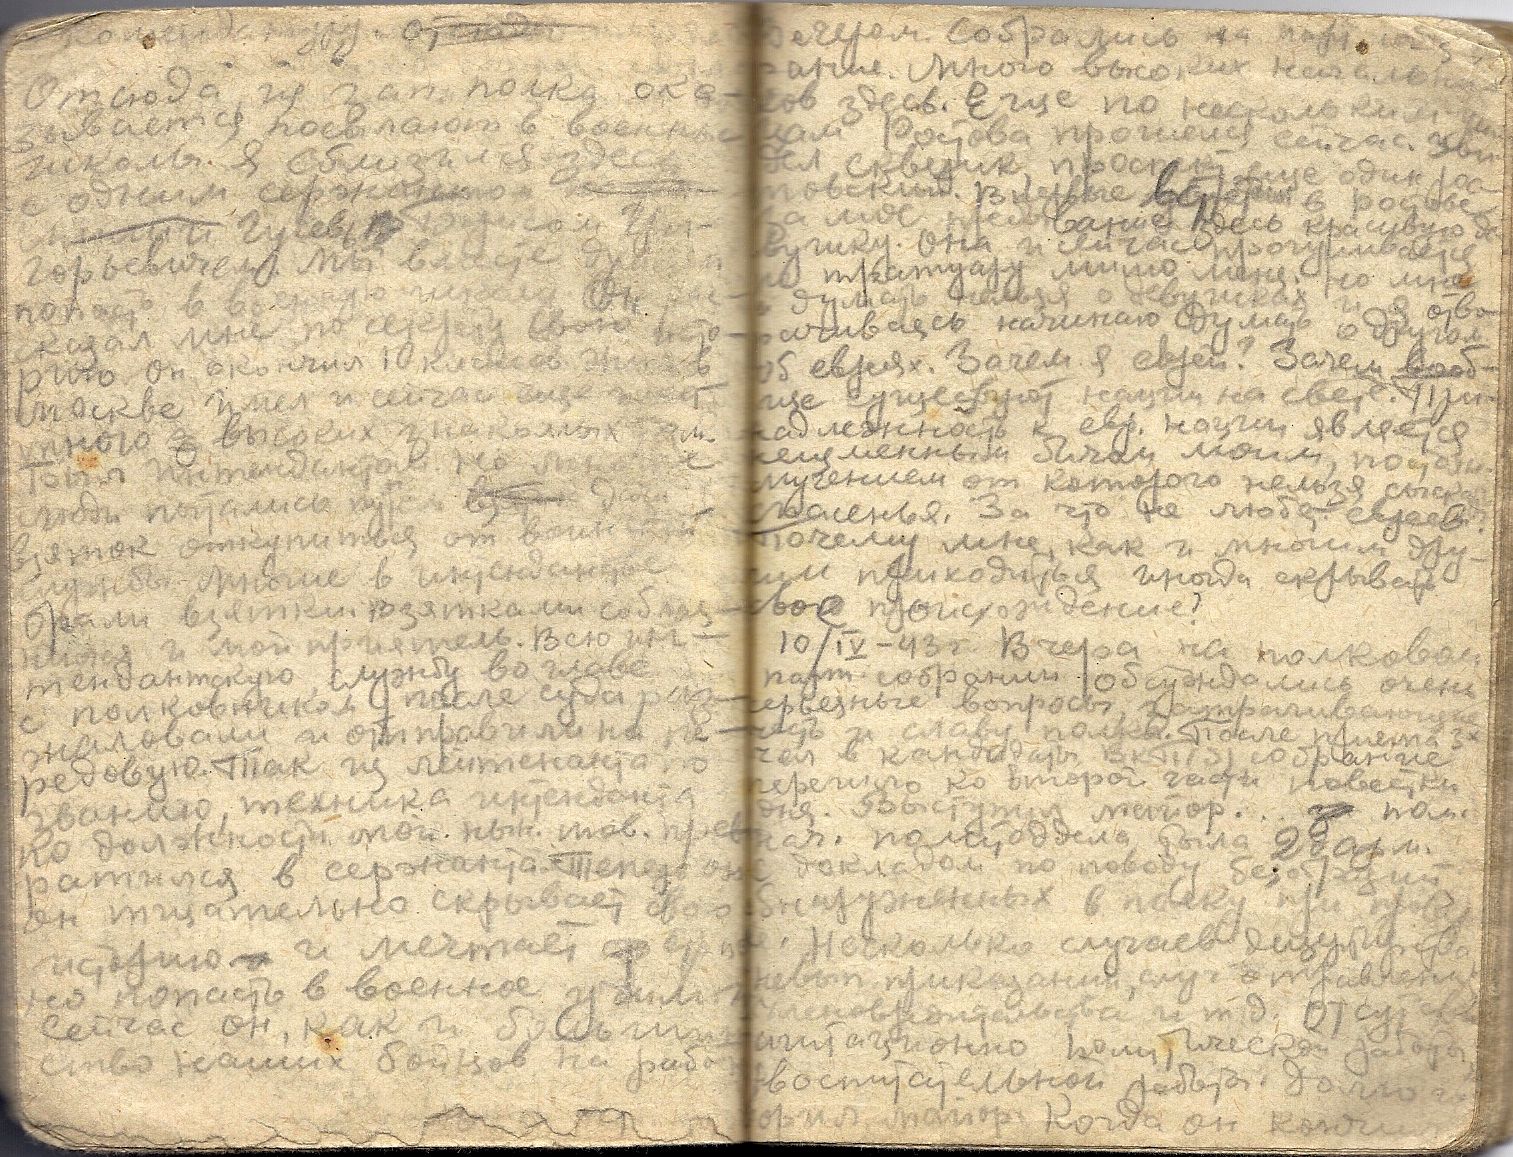 комендатуру.
Отсюда, из зап. полка ока-
зывается посылают в военные
школы. Я сблизился здесь
с одним сержантом
Гусевым Борисом Гри-
горьевичем. Мы вместе думаем
попасть в военную школу. Он рас-
сказал мне по секрету свою исто-
рию. Он окончил 10 классов. Жил в
Москве. Имел и сейчас еще имеет
много высоких знакомых там.
Был интендантом. Но многие
люди пытались путем дачи
взяток откупиться от воинской
службы. Многие в интендантстве
брали взятки. Взятками соблаз-
нился и мой приятель. Всю ин-
тендантскую службу во главе
с полковником после суда раз-
жаловали и отправили на пе-
редовую. Так из лейтенанта по
званию, техника интенданта
по должности мой нын. тов. прев-
ратился в сержанта. Теперь
он тщательно скрывает свою
историю и мечтает
но попасть в военное училище
сейчас он, как и большин-
ство наших бойцов на работе
вечером. Собрались на парт.
рание. Много высоких начальни-
ков здесь. Еще по нескольким ули-
цам Ростова прошелся сейчас. Уви-
дел скверик, проспект, еще один рос-
товский. Впервые встретил в Ростове
за мое пребывание здесь красивую де-
вушку. Она и сейчас прогуливается
по тратуару мимо меня. Но мне
думать нельзя о девушках и я отво-
рачиваясь начинаю думать о другом
об евреях. Зачем я еврей? Зачем вооб-
ще существуют нации на свете. При-
надлежность к евр. нации является
неизменным бичом моим, постоян.
мучением от которого нельзя сыскать
спасенья. За что не любят евреев?
Почему мне, как и многим дру-
гим приходиться иногда скрывать
свое происхождение?
10/IV-43 г. Вчера на полковом
парт. собрании обсуждались очень
серьезные вопросы затрагивающие
честь и славу полка. После приема 3х
чел в кандидаты ВКП(б) собрание
перешло ко второй части повестки
дня. Выступил майор... пом.
нач. политотдела
с докладом по поводу безобразий
обнаруженных в полку при провер-
ке. Несколько случаев дизертирства
невып. приказаний, случ.
членовредительства и т.д. Отсутствие
агитационно политической работы
воспитательной работы. Долго го-
ворил майор. Когда он кончил